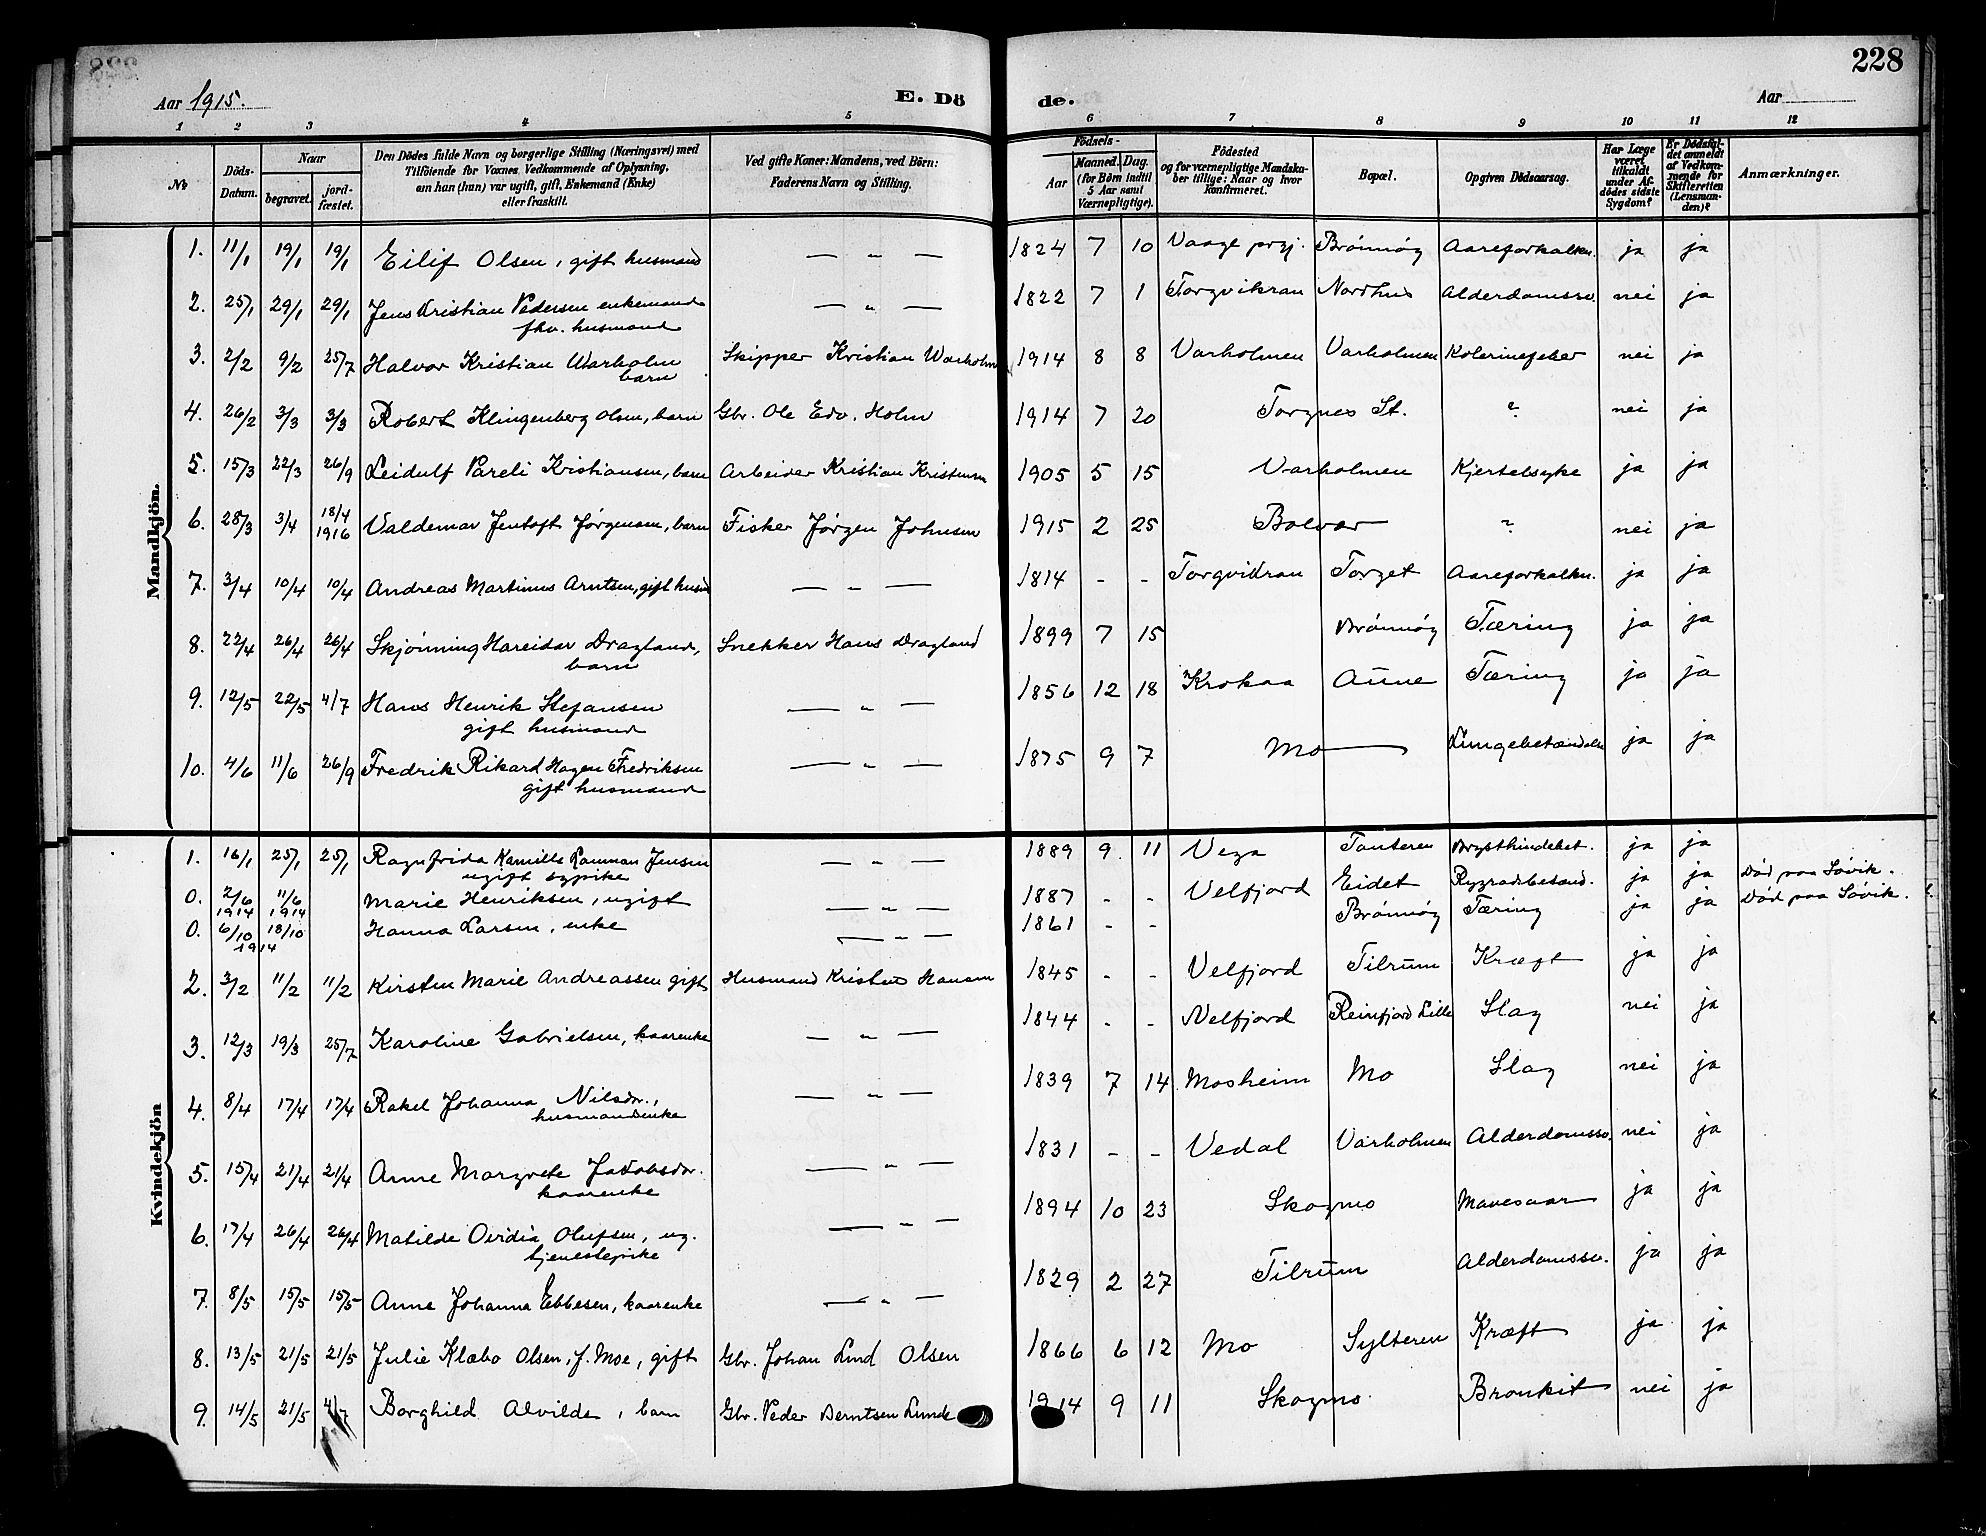 228
Aar 1915.
E. Dö
de.
Aar
1 2 3 4 5 6 7 8 9 10 11 12
No
Döds-Datum.
Naar
begravet.
jord-fæstet.
Den Dödes fulde Navn og borgerlige Stilling (Næringsvei) med
Tilföiende for Voxnes Vedkommende af Oplysning,
om han (hun) var ugift, gift, Enkemand (Enke)
eller fraskilt.
Ved gifte Koner: Mandens, ved Börn:
Faderens Navn og Stilling.
Födsels-
Aar
Maaned. Dag.
(for Börn indtil
5 Aar samt
Værnepligtige).
Födested
og for værnepligtige Mandska-
ber tillige: Naar og hvor
konfirmeret.
Bopæl.
Opgiven Dödsaarsag.
Har Læge
været
tilkaldt
under Af-
dödes sidste
Sygdom?
Er Dödsfal-
det anmeldt
af Vedkom-
mende for
Skifteretten
(Lensman-
den)?
Anmærkninger.
Mandkjön.
1. 11/1 19/1 19/1 Eilif Olsen, gift husmand — " — 1824 7 10 Vaage prgj. Brønnøy Aareforkalkn. ja ja
2. 25/1 29/1 29/1 Jens Kristian Pedersen enkemand
fhv. husmand — " — 1822 7 1 Torgvikran Nordhus Alderdomssv. nei ja
3. 2/2 9/2 25/7 Halvor Kristian Warholm
barn Skipper Kristian Warholm 1914 8 8 Varholmen Varholmen Kolerinefeber nei ja
4. 26/2 3/3 3/3 Robert Klingenberg Olsen, barn Gbr. Ole Edv. Holm 1914 7 20 Torgnes St. ? nei ja
5. 15/3 22/3 26/9 Leidulf Pareli Kristiansen, barn Arbeider Kristian Kristensen 1905 5 15 Varholmen Kjertelsyke ja ja
6. 28/3 3/4 18/4 1916 Valdemar Jentoft Jørgensen, barn Fisker Jørgen Johnsen 1915 2 25 Bolvær ? nei ja
7. 3/4 10/4 10/4 Andreas Martinus Arntsen, gift husmd — " — 1814 - - Torgvikran Torget Aareforkalkn. ja ja
8. 22/4 26/4 26/4 Skjønning Hareidar Dragland,
barn Snekker Hans Dragland 1899 7 15 Brønnøy Tæring ja ja
9. 12/5 22/5 4/7 Hans Henrik Stefansen
gift husmand — " — 1856 12 18 Krokaa Aune Tæring ja ja
10. 4/6 11/6 26/9 Fredrik Rikard Hagen Fredriksen
gift husmand — " — 1875 9 7 Mo — Lungebetændelse ja ja
Kvindekjön
1. 16/1 25/1 25/1 Ragnfrida Kamilla Jensen
ugift sypike — " — 1889 9 11 Vega Tonteren Brysthindebet. ja ja
0. 2/6 1914 11/6 1914 Marie Henriksen, ugift — " — 1887 - - Velfjord Eidet Rygradsbetænd. ja ja Død paa Søvik.
0. 6/10 18/10 1914 Hanna Larsen, enke — " — 1861 - - Brønnøy Tæring ja ja Død paa Søvik.
2. 3/2 11/2 11/2 Kirsten Marie Andreassen gift Husmand Kristens Hansen 1845 - - Velfjord Tilrum Kræft ja ja
3. 12/3 19/3 25/7 Karoline Gabrielsen, kaarenke — " — 1844 - - Velfjord Reinfjord Lille Slag nei ja
4. 8/4 17/4 17/4 Rakel Johanna Nilsdr.,
husmandsenke — " — 1839 7 14 Mosheim Mo Slag nei ja
5. 15/4 21/4 21/4 Anne Margrete Jakobsdr.
kaarenke — " — 1831 - - Vedal Varholmen Alderdomssv. nei ja
6. 17/4 26/4 26/4 Matilde Ovidia Olufsen, ug.
tjenestepike — " — 1894 10 23 Skogmo Mavesaar ja ja
7. 8/5 15/5 15/5 Anne Johanna Ebbesen, kaarenke — " — 1829 2 27 Tilrum Alderdomssv. ja ja
8. 13/5 21/5 21/5 Julie Klæbo Olsen, f. Moe, gift Gbr. Johan Lind Olsen 1866 6 12 Mo Sylteren Kræft ja ja
9. 14/5 21/5 4/7 Borghild Alvilde, barn Gbr. Peder Berntsen Lunde 1914 9 11 Skogmo. Bronkit nei ja